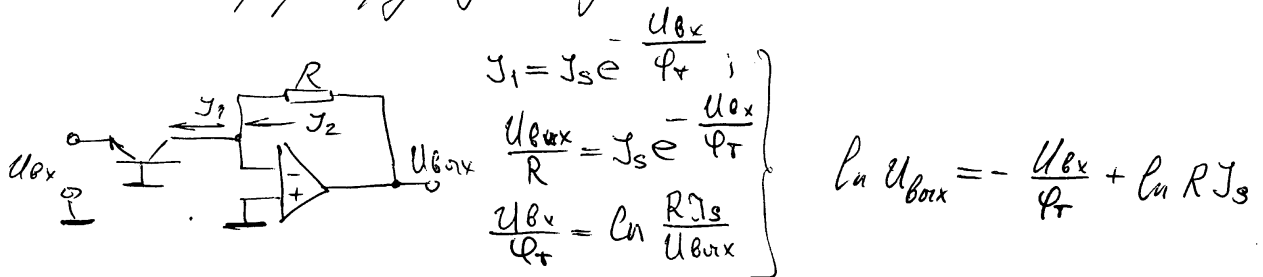 R
J₁
J₂
Uвх
Uвых
−
+
J₁ = Jₛe^(−Uвх/φт) ;
Uвых/R = Jₛe^(−Uвх/φт)
Uвх/φт = ln RJₛ/Uвых
ln Uвых = − Uвх/φт + ln RJₛ